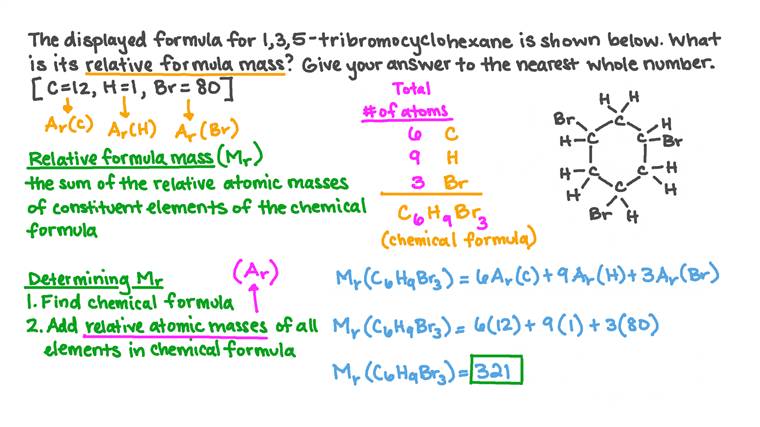 The displayed formula for 1,3,5-tribromocyclohexane is shown below. What
is its relative formula mass? Give your answer to the nearest whole number.
[C=12, H=1, Br=80]
Ar(C) Ar(H) Ar(Br)
Relative formula mass (Mr)
the sum of the relative atomic masses
of constituent elements of the chemical
formula
Total
# of atoms
6 C
9 H
3 Br
C6H9Br3
(chemical formula)
H H
Br C H
H-C C-Br
H-C C-H
H C H
Br H
Determining Mr
(Ar)
1. Find chemical formula
2. Add relative atomic masses of all
elements in chemical formula
Mr(C6H9Br3) = 6Ar(C) + 9Ar(H) + 3Ar(Br)
Mr(C6H9Br3) = 6(12) + 9(1) + 3(80)
Mr(C6H9Br3) = 321